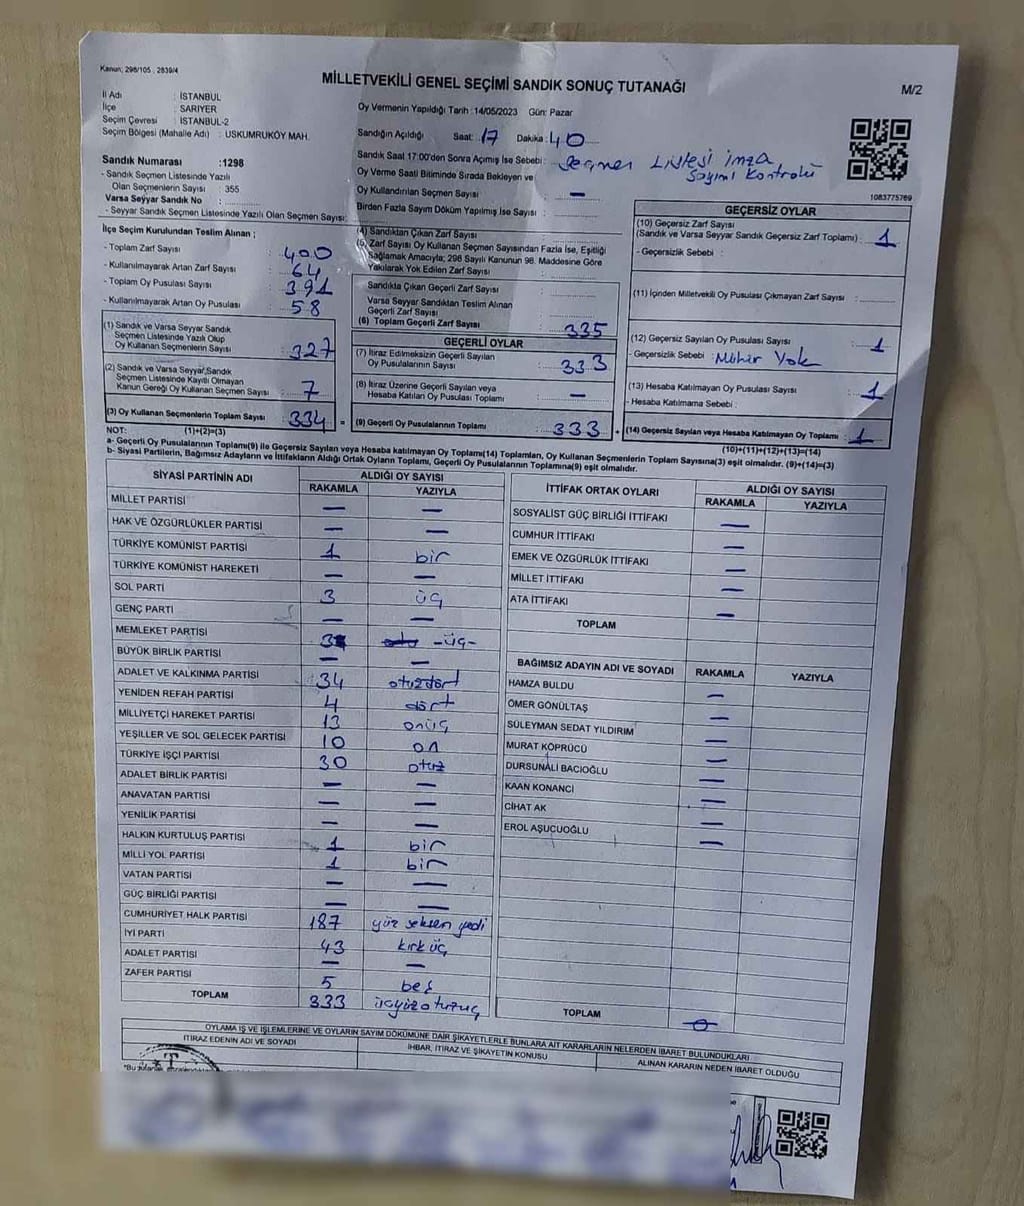 Kanun; 298/105 , 2839/4
MİLLETVEKİLİ GENEL SEÇİMİ SANDIK SONUÇ TUTANAĞI
M/2
İl Adı : İSTANBUL
İlçe : SARIYER
Seçim Çevresi : İSTANBUL-2
Seçim Bölgesi (Mahalle Adı) : USKUMRUKÖY MAH.
Oy Vermenin Yapıldığı Tarih :14/05/2023 Gün: Pazar
Sandığın Açıldığı Saat: 17 Dakika: 40
Sandık Saat 17:00'den Sonra Açımış İse Sebebi: Seçmen Listesi imza
Sayımı Kontrolü
Oy Verme Saati Bitiminde Sırada Bekleyen ve
Oy Kullandırılan Seçmen Sayısı : —
Birden Fazla Sayım Döküm Yapılmış İse Sayısı :
1083775769
Sandık Numarası :1298
- Sandık Seçmen Listesinde Yazılı
Olan Seçmenlerin Sayısı : 355
Varsa Seyyar Sandık No :
- Seyyar Sandık Seçmen Listesinde Yazılı Olan Seçmen Sayısı:
İlçe Seçim Kurulundan Teslim Alınan ;
- Toplam Zarf Sayısı : 400
- Kullanılmayarak Artan Zarf Sayısı : 64
- Toplam Oy Pusulası Sayısı : 391
- Kullanılmayarak Artan Oy Pusulası : 58
(1) Sandık ve Varsa Seyyar Sandık
Seçmen Listesinde Yazılı Olup
Oy Kullanan Seçmenlerin Sayısı : 327
(2) Sandık ve Varsa Seyyar Sandık
Seçmen Listesinde Kayıtlı Olmayan
Kanun Gereği Oy Kullanan Seçmen Sayısı : 7
(3) Oy Kullanan Seçmenlerin Toplam Sayısı : 334 =
(4) Sandıktan Çıkan Zarf Sayısı
(5) Zarf Sayısı Oy Kullanan Seçmen Sayısından Fazla İse, Eşitliği
Sağlamak Amacıyla; 298 Sayılı Kanunun 98. Maddesine Göre
Yakılarak Yok Edilen Zarf Sayısı :
Sandıkta Çıkan Geçerli Zarf Sayısı :
Varsa Seyyar Sandıktan Teslim Alınan
Geçerli Zarf Sayısı :
(6) Toplam Geçerli Zarf Sayısı : 335
GEÇERLİ OYLAR
(7) İtiraz Edilmeksizin Geçerli Sayılan
Oy Pusulalarının Sayısı : 333
(8) İtiraz Üzerine Geçerli Sayılan veya
Hesaba Katılan Oy Pusulası Toplamı : —
(9) Geçerli Oy Pusulalarının Toplamı : 333 +
GEÇERSİZ OYLAR
(10) Geçersiz Zarf Sayısı
(Sandık ve Varsa Seyyar Sandık Geçersiz Zarf Toplamı) : 1
- Geçersizlik Sebebi :
(11) İçinden Milletvekili Oy Pusulası Çıkmayan Zarf Sayısı :
(12) Geçersiz Sayılan Oy Pusulası Sayısı : 1
- Geçersizlik Sebebi : Mühür Yok
(13) Hesaba Katılmayan Oy Pusulası Sayısı : 1
- Hesaba Katılmama Sebebi :
(14) Geçersiz Sayılan veya Hesaba Katılmayan Oy Toplamı : 1
NOT: (1)+(2)=(3)
(10)+(11)+(12)+(13)=(14)
a- Geçerli Oy Pusulalarının Toplamı(9) ile Geçersiz Sayılan veya Hesaba katılmayan Oy Toplamı(14) Toplamları, Oy Kullanan Seçmenlerin Toplam Sayısına(3) eşit olmalıdır. (9)+(14)=(3)
b- Siyasi Partilerin, Bağımsız Adayların ve İttifakların Aldığı Ortak Oyların Toplamı, Geçerli Oy Pusulalarının Toplamına(9) eşit olmalıdır.
SİYASİ PARTİNİN ADI ALDIĞI OY SAYISI
RAKAMLA YAZIYLA
MİLLET PARTİSİ — —
HAK VE ÖZGÜRLÜKLER PARTİSİ — —
TÜRKİYE KOMÜNİST PARTİSİ 1 bir
TÜRKİYE KOMÜNİST HAREKETİ — —
SOL PARTİ 3 üç
GENÇ PARTİ — —
MEMLEKET PARTİSİ 3 -üç-
BÜYÜK BİRLİK PARTİSİ — —
ADALET VE KALKINMA PARTİSİ 34 otuzdört
YENİDEN REFAH PARTİSİ 4 dört
MİLLİYETÇİ HAREKET PARTİSİ 13 onüç
YEŞİLLER VE SOL GELECEK PARTİSİ 10 on
TÜRKİYE İŞÇİ PARTİSİ 30 otuz
ADALET BİRLİK PARTİSİ — —
ANAVATAN PARTİSİ — —
YENİLİK PARTİSİ — —
HALKIN KURTULUŞ PARTİSİ 1 bir
MİLLİ YOL PARTİSİ 1 bir
VATAN PARTİSİ — —
GÜÇ BİRLİĞİ PARTİSİ — —
CUMHURİYET HALK PARTİSİ 187 yüz seksen yedi
İYİ PARTİ 43 kırk üç
ADALET PARTİSİ — —
ZAFER PARTİSİ 5 beş
TOPLAM 333 üçyüzotuzüç
İTTİFAK ORTAK OYLARI ALDIĞI OY SAYISI
RAKAMLA YAZIYLA
SOSYALİST GÜÇ BİRLİĞİ İTTİFAKI —
CUMHUR İTTİFAKI —
EMEK VE ÖZGÜRLÜK İTTİFAKI —
MİLLET İTTİFAKI —
ATA İTTİFAKI —
TOPLAM
BAĞIMSIZ ADAYIN ADI VE SOYADI RAKAMLA YAZIYLA
HAMZA BULDU —
ÖMER GÖNÜLTAŞ —
SÜLEYMAN SEDAT YILDIRIM —
MURAT KÖPRÜCÜ —
DURSUNALİ BACIOĞLU —
KAAN KONANCI —
CİHAT AK —
EROL AŞUCUOĞLU —
TOPLAM 0
OYLAMA İŞ VE İŞLEMLERİNE VE OYLARIN SAYIM DÖKÜMÜNE DAİR ŞİKAYETLERLE BUNLARA AİT KARARLARIN NELERDEN İBARET BULUNDUKLARI
İTİRAZ EDENİN ADI VE SOYADI İHBAR, İTİRAZ VE ŞİKAYETİN KONUSU ALINAN KARARIN NEDEN İBARET OLDUĞU